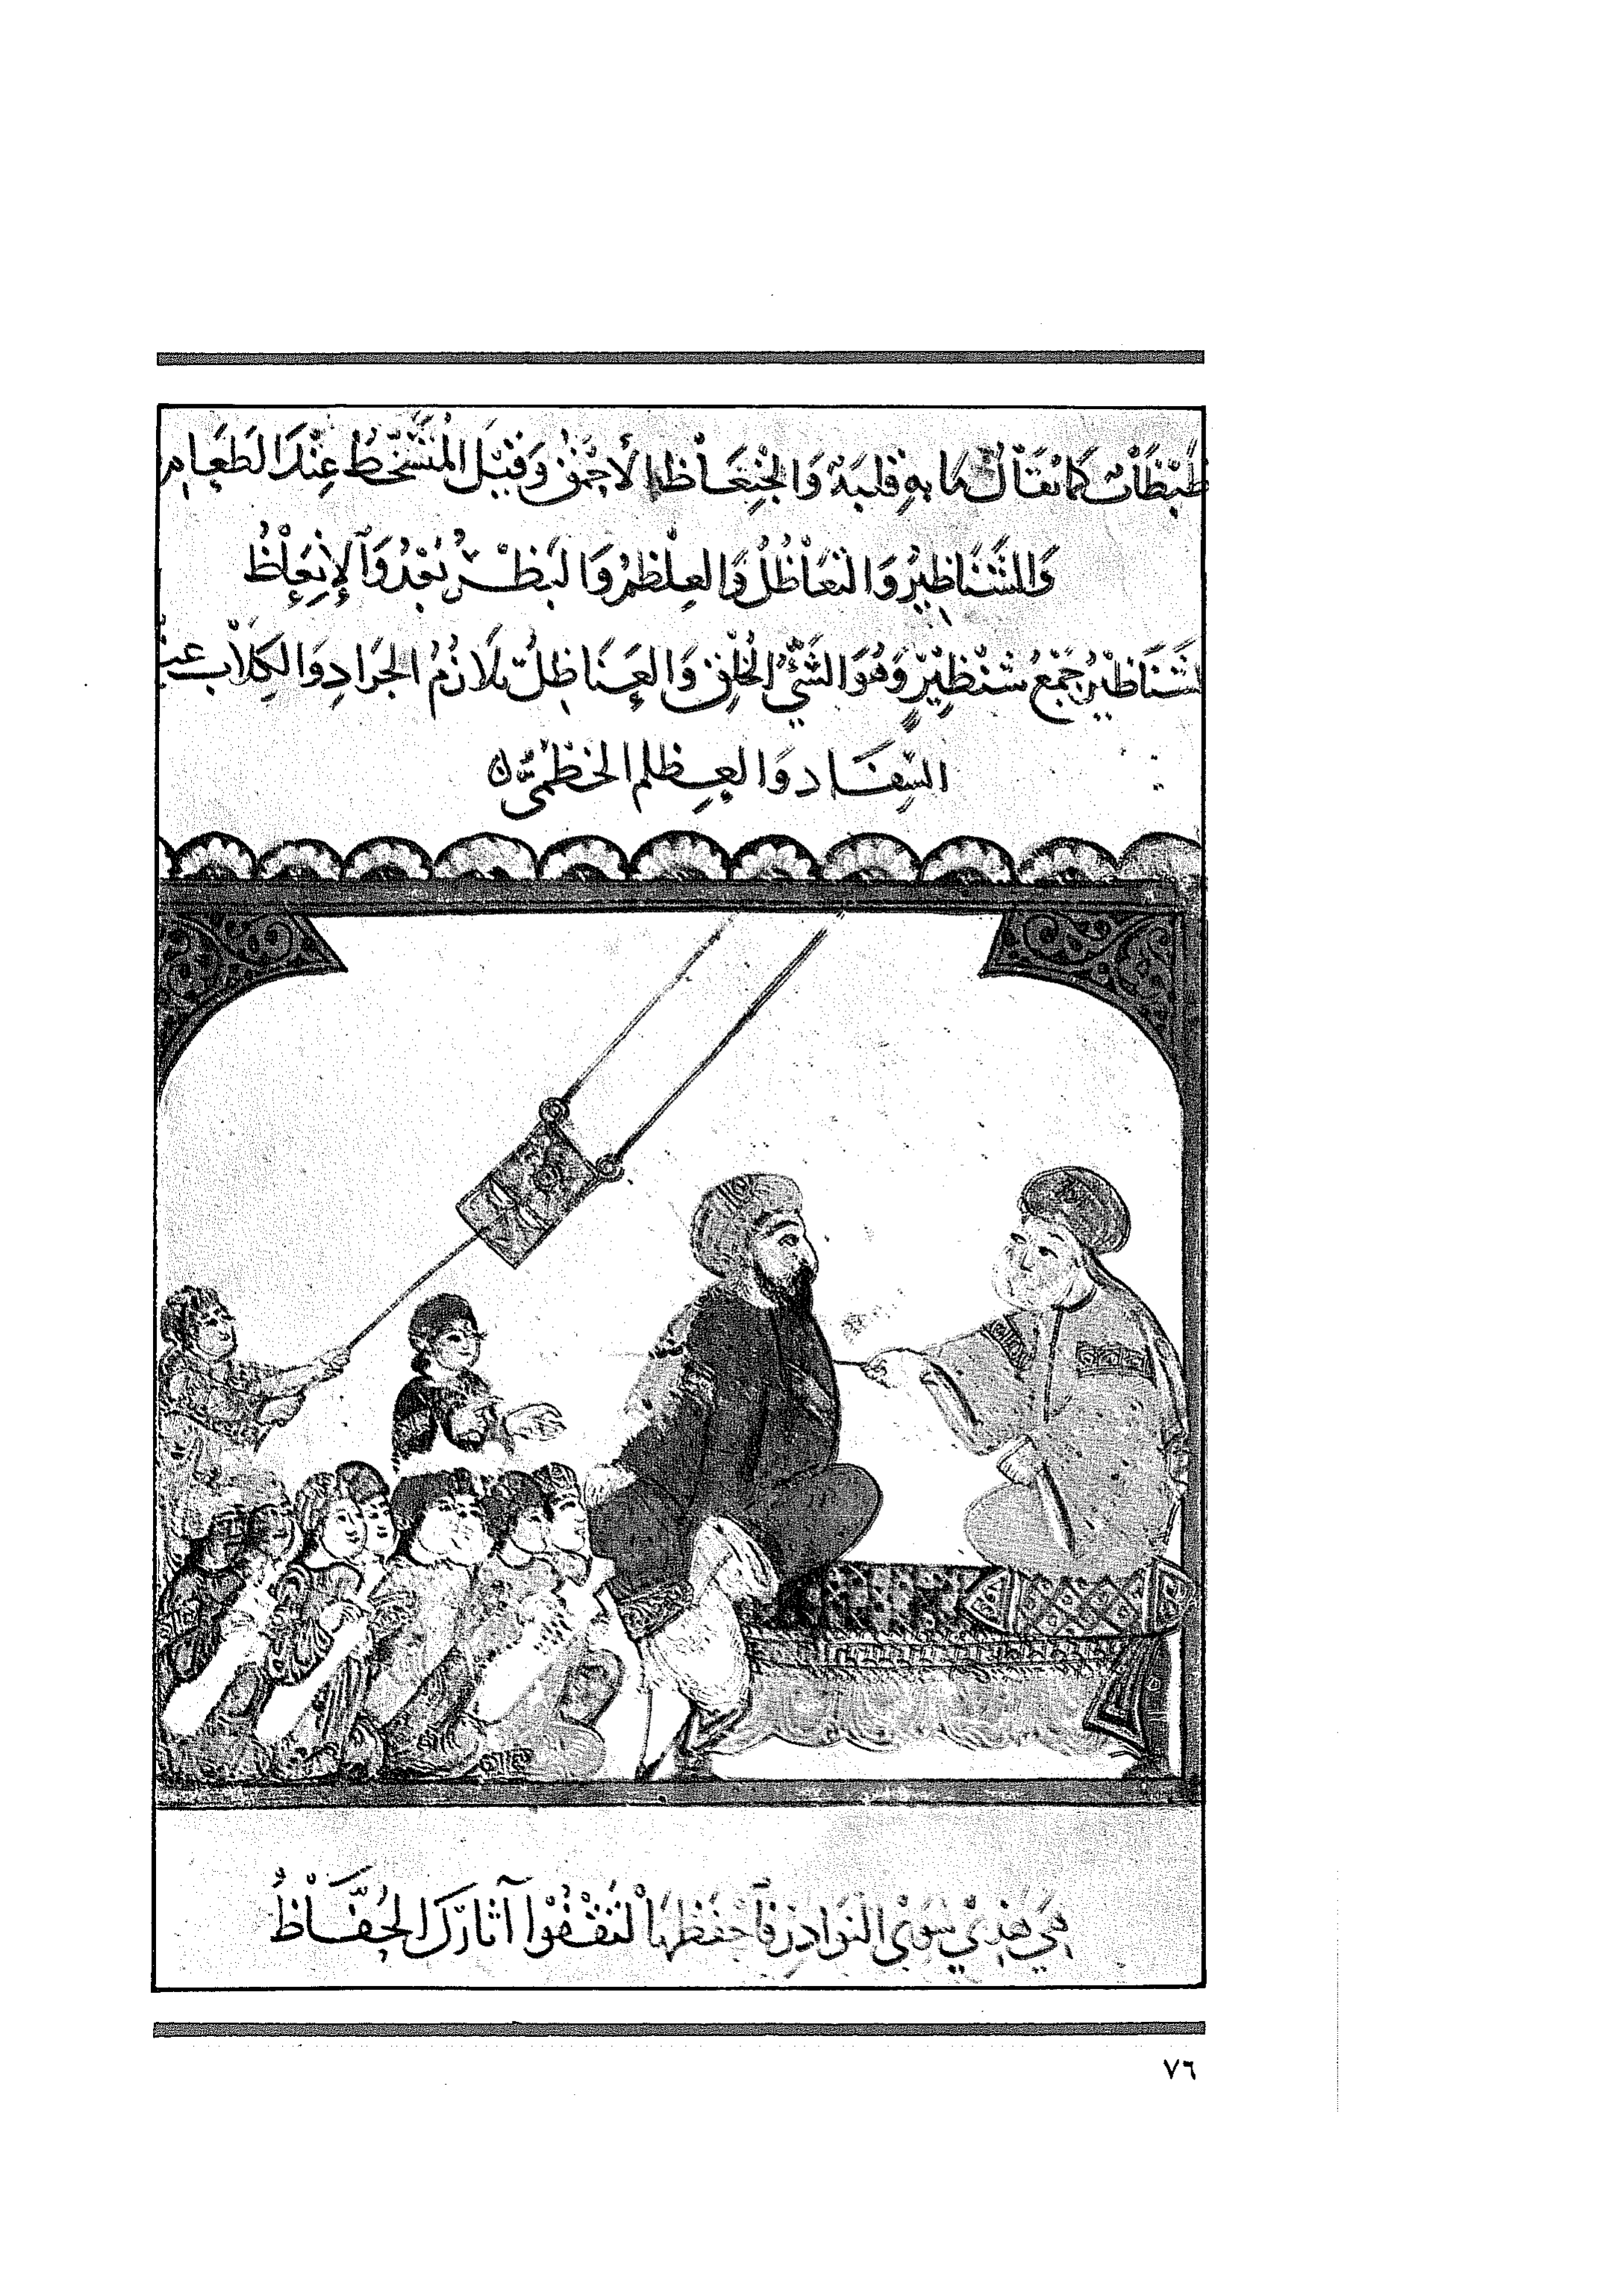 ظبظاب كما يقال ما به قلبة والجنعاظ الاحمق وقيل المتسخط عند الطعام
والشناظير والتعاظل والعظلم والبظر بعد والإنعاظ
الشناظير جمع شنظير وهو السيئ الخلق والعناظل تلازم الجراد والكلاب عند
السفاد والعظلم الخطمى
هي هذي سوى النوادر فاحفظها لتقفوا آثارك الحفاظ
٧٦